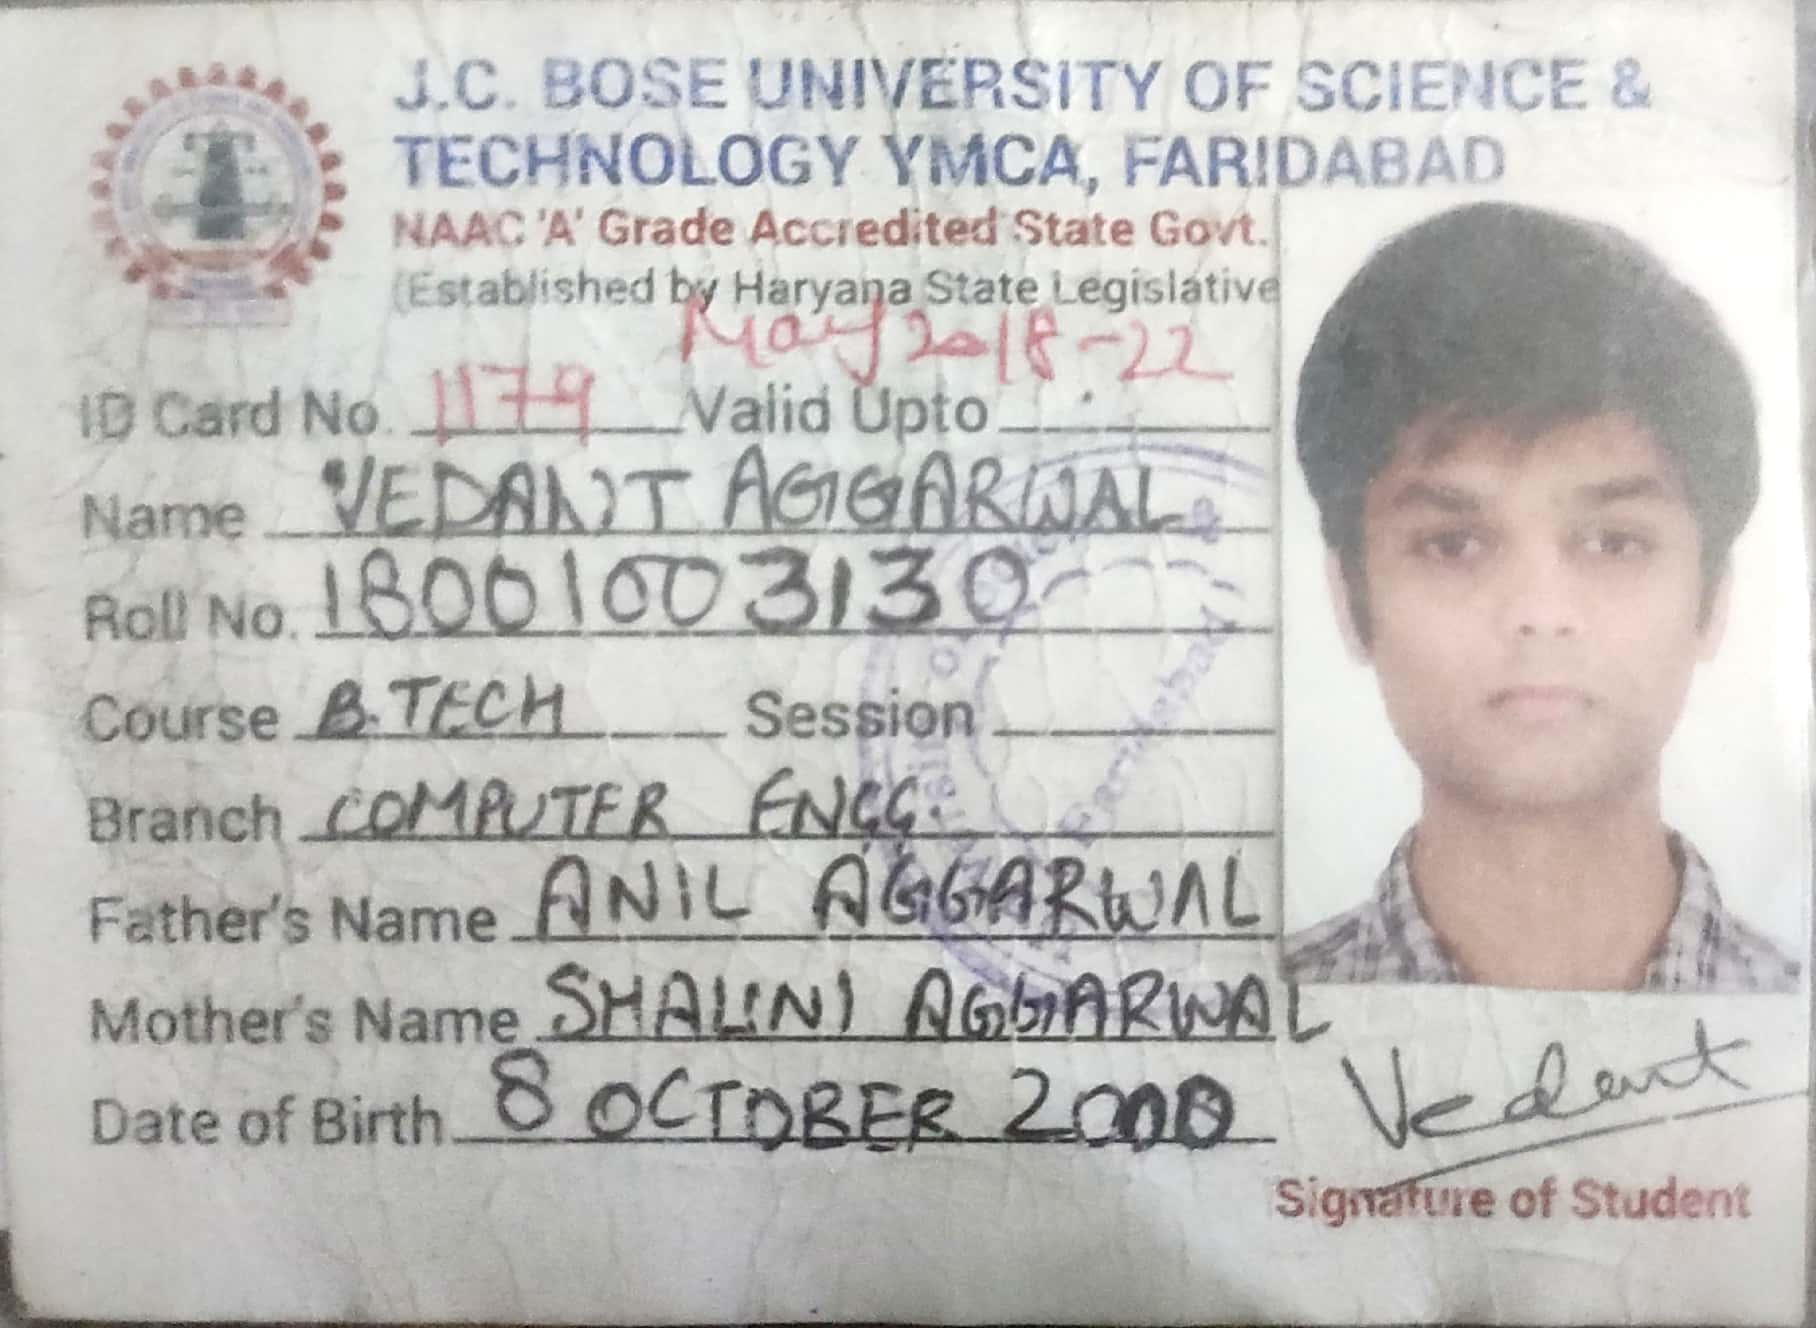 J.C. BOSE UNIVERSITY OF SCIENCE &
TECHNOLOGY YMCA, FARIDABAD
NAAC 'A' Grade Accredited State Govt.
(Established by Haryana State Legislative
May 2018-22
ID Card No. 1179 Valid Upto
Name VEDANT AGGARWAL
Roll No. 18001003130
Course B.TECH Session
Branch COMPUTER ENGG.
Father's Name ANIL AGGARWAL
Mother's Name SHALINI AGGARWAL
Date of Birth 8 OCTOBER 2000
Vedant
Signature of Student
Faridabad